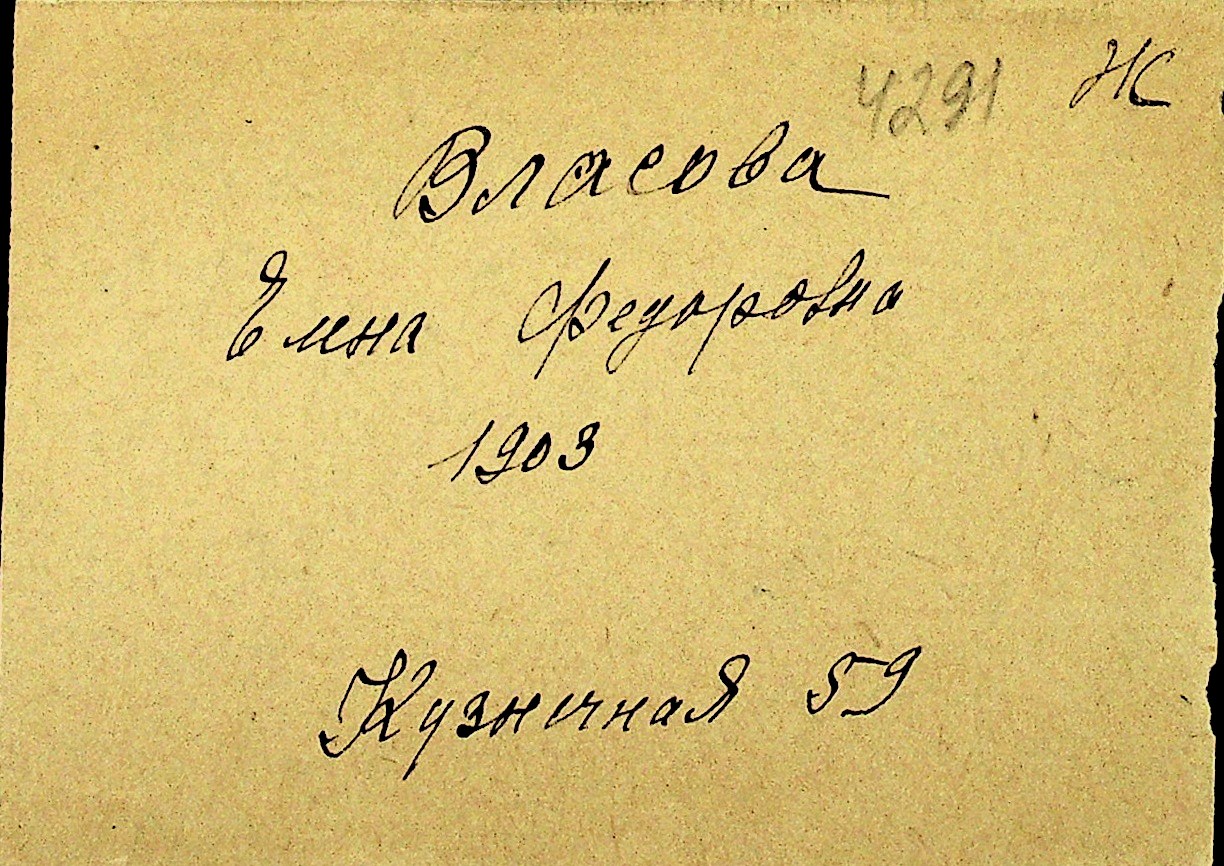 4291 Ж
Власова
Елена Федоровна
1903
Кузнечная 59